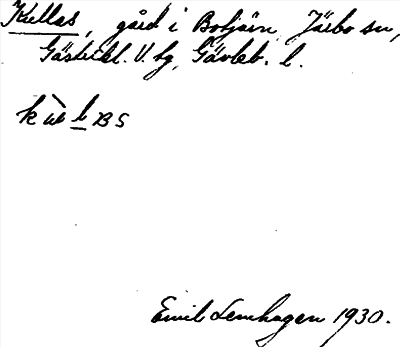 Kullas, gård i Botjärn, Järbo sn,
Gästrikl. V. tg, Gävleb. l.
Emil Lemhagen 1930.